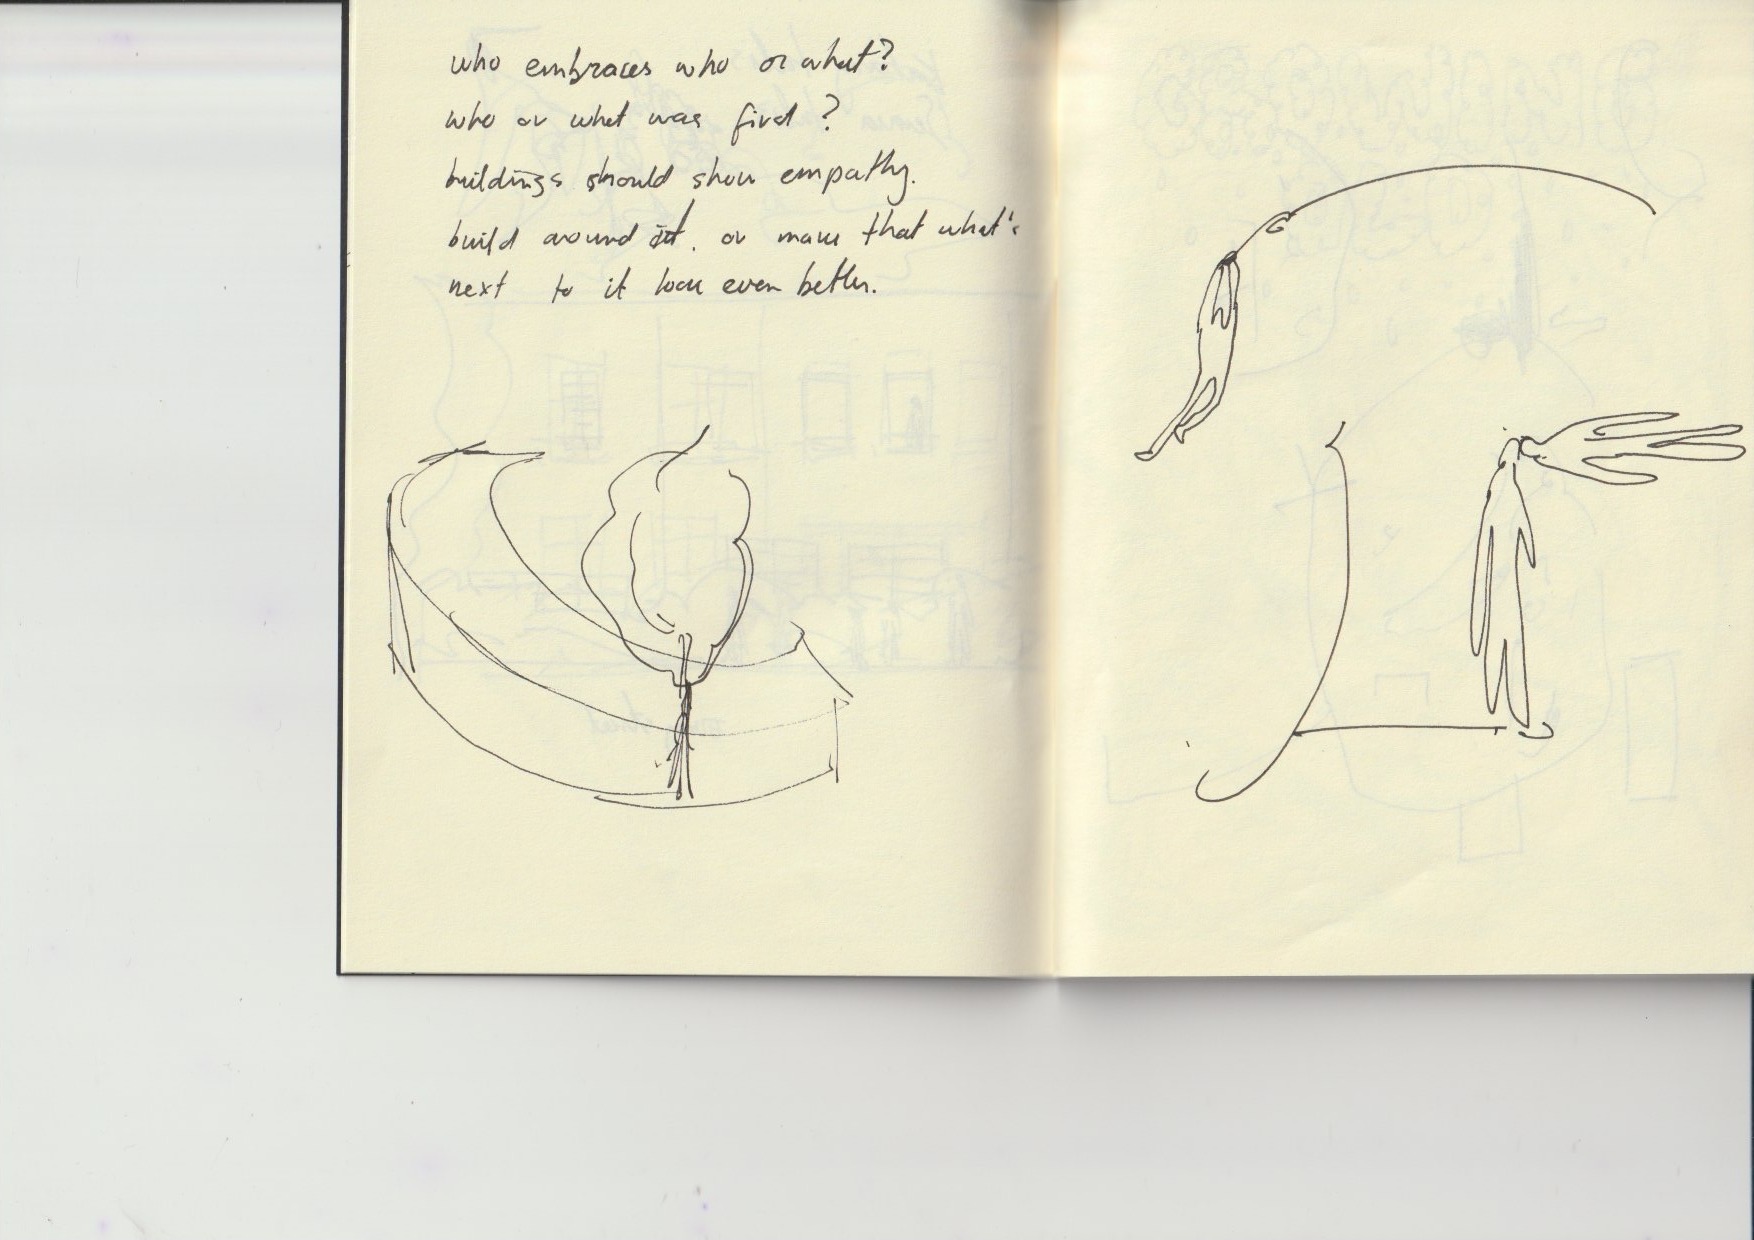 who embraces who or what?
who or what was first?
buildings should show empathy.
build around it, or make that what's
next to it look even better.